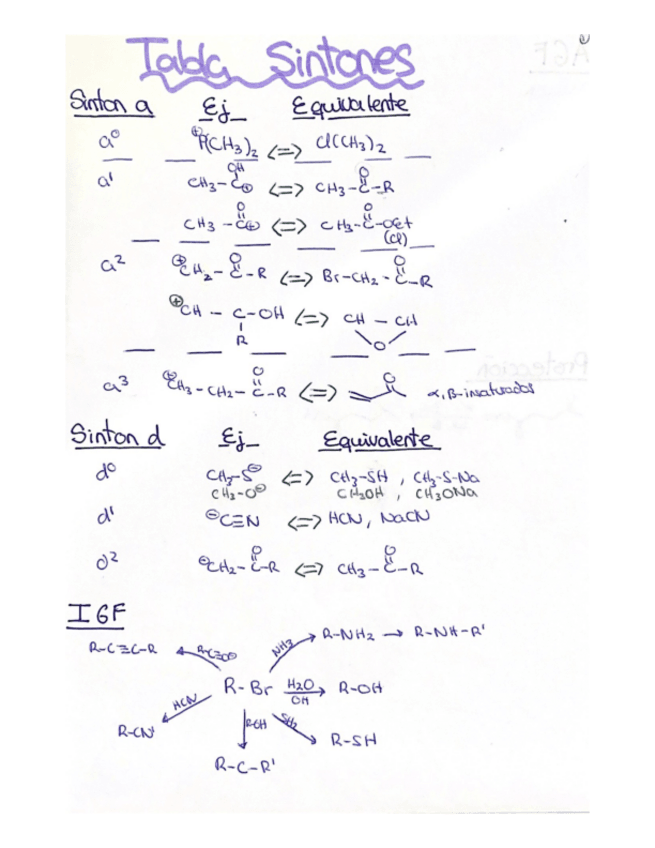 Tabla Sintones
Sinton a Ej_ Equivalente
a⁰ ⊕P(CH₃)₂ <=> Cl(CH₃)₂
a¹ CH₃-C⊕ OH <=> CH₃-C-R O
CH₃-C⊕ O <=> CH₃-C-OEt O
(Cl)
a² ⊕CH₂-C-R O <=> Br-CH₂-C-R O
⊕CH - C-OH <=> CH - CH
R O
a³ ⊕CH₃-CH₂-C-R O <=> O α,β-insaturados
Sinton d Ej_ Equivalente
d⁰ CH₃-S⊖ <=> CH₃-SH , CH₃-S-Na
CH₃-O⊖ CH₃OH , CH₃ONa
d¹ ⊖C≡N <=> HCN, NaCN
d² ⊖CH₂-C-R O <=> CH₃-C-R O
IGF
R-C≡C-R NH₃ R-NH₂ → R-NH-R'
R-Br H₂O OH R-OH
HCN SH₂
R-CN R-SH
R-C-R'